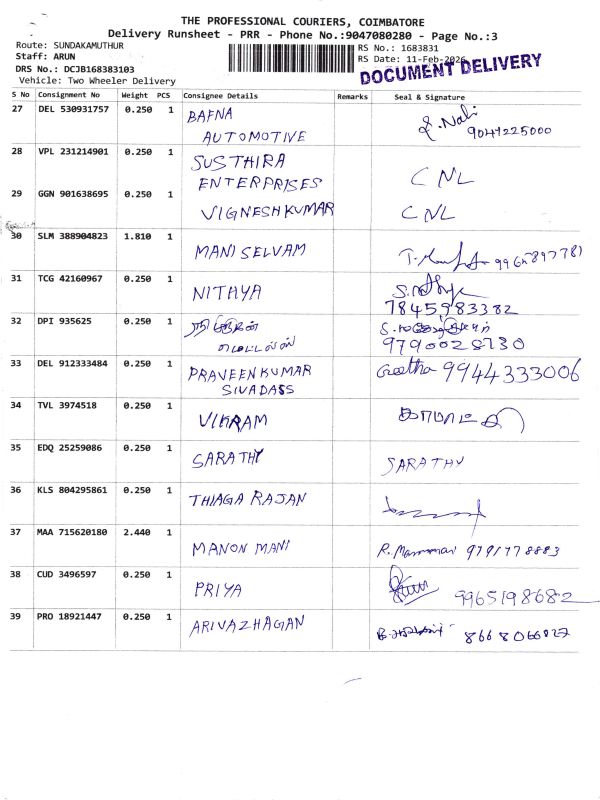 THE PROFESSIONAL COURIERS, COIMBATORE
Delivery Runsheet - PRR - Phone No.:9047080280 - Page No.:3
Route: SUNDAKAMUTHUR
RS No.: 1683831
Staff: ARUN
RS Date: 11-Feb-2026
DRS No.: DCJB168383103
DOCUMENT DELIVERY
Vehicle: Two Wheeler Delivery
S No Consignment No Weight PCS Consignee Details Remarks Seal & Signature
27 DEL 530931757 0.250 1 BAFNA
AUTOMOTIVE 9047225000
28 VPL 231214901 0.250 1 SUSTHIRA
ENTERPRISES CNL
29 GGN 901638695 0.250 1 VIGNESHKUMAR CNL
30 SLM 388904823 1.810 1 MANI SELVAM
31 TCG 42160967 0.250 1 NITHYA
7845983382
32 DPI 935625 0.250 1
மெட்டல்ஸ் 9790028730
33 DEL 912333484 0.250 1 PRAVEENKUMAR Geetha 9944333006
SIVADASS
34 TVL 3974518 0.250 1 VIKRAM
35 EDQ 25259086 0.250 1 SARATHY SARATHY
36 KLS 804295861 0.250 1 THIAGA RAJAN
37 MAA 715620180 2.440 1 MANON MANI 9791778883
38 CUD 3496597 0.250 1 PRIYA 9965198682
39 PRO 18921447 0.250 1 ARIVAZHAGAN 8668066827